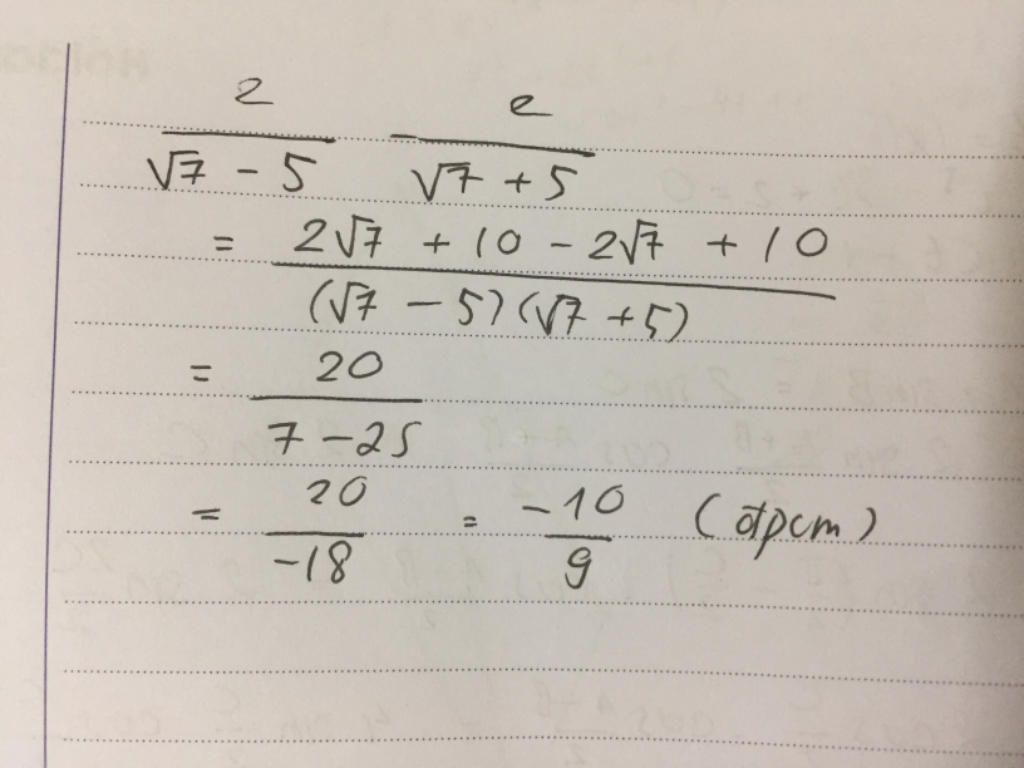 2/(√7 - 5) 2/(√7 + 5)
= (2√7 + 10 - 2√7 + 10)/((√7 - 5)(√7 + 5))
= 20/(7 - 25)
= 20/-18 = -10/9 (đpcm)